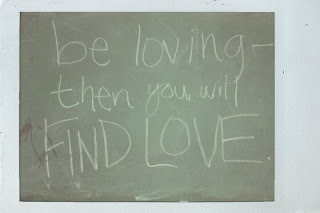 be loving-
then you will
FIND LOVE.